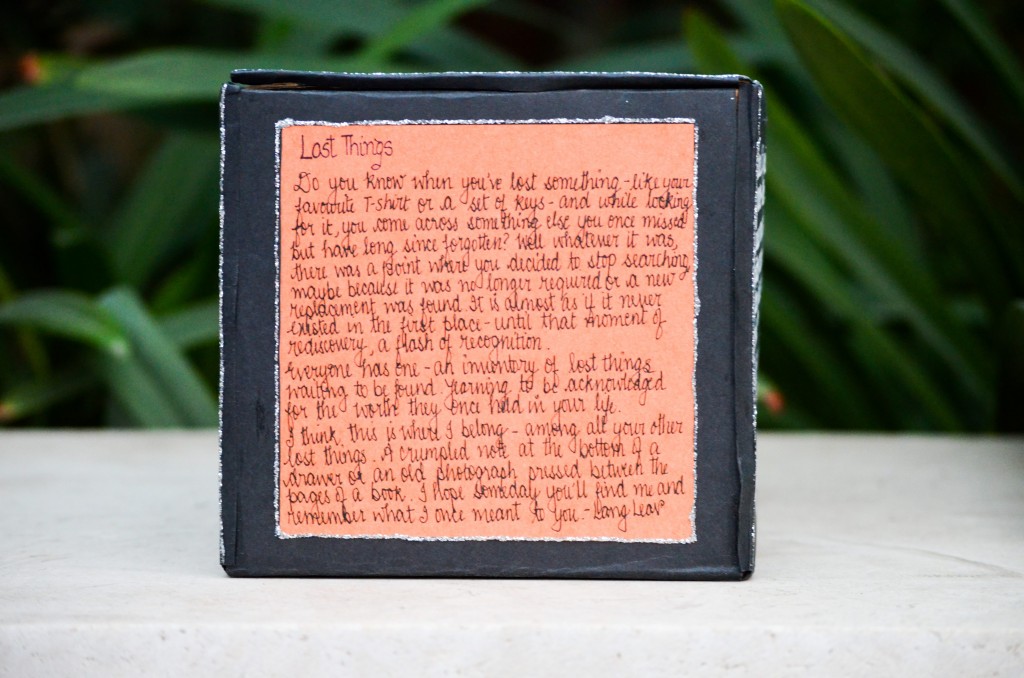 Lost Things
Do you know when you've lost something - like your
favourite T-shirt or a set of keys - and while looking
for it, you come across something else you once missed
but have long since forgotten? Well whatever it was,
there was a point where you decided to stop searching,
maybe because it was no longer required or a new
replacment was found. It is almost as if it never
existed in the first place - until that moment of
rediscovery, a flash of recognition.
Everyone has one - an inventory of lost things
waiting to be found. Yearning to be acknowledged
for the worth they once held in your life.
I think this is where I belong - among all your other
lost things. A crumpled note at the bottom of a
drawer or an old photograph pressed between the
pages of a book. I hope someday you'll find me and
remember what I once meant to you. - Lang Leav